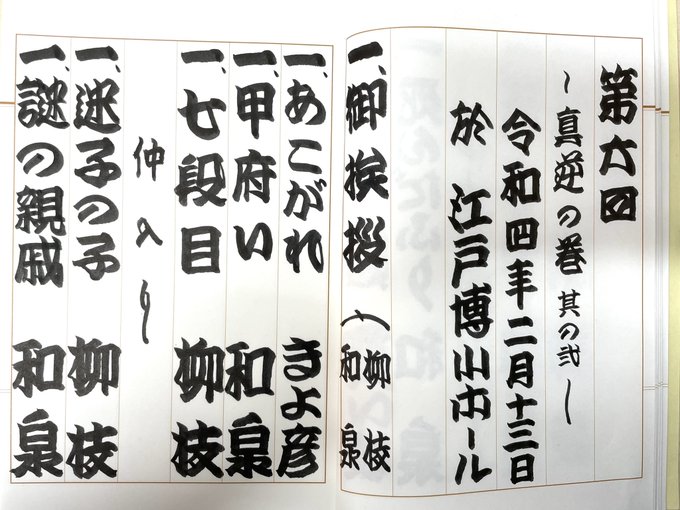 第六回
～真逆の巻 其の弐～
令和四年二月十三日
於 江戸博小ホール
一、御挨拶(柳枝 和泉
一、あこがれ きよ彦
一、甲府い 和泉
一、七段目 柳枝
仲入り～
一、迷子の子 柳枝
一、謎の親戚 和泉